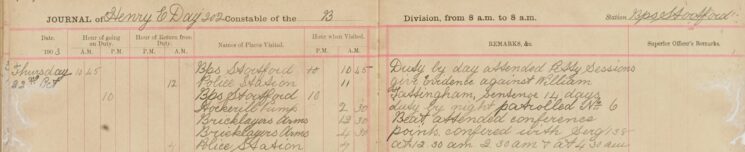 JOURNAL of Henry C Day 202 Constable of the B Division, from 8 a.m. to 8 a.m. Station Bps Stortford
Date. Hour of going on Duty. Hour of Return from Duty. Names of Places Visited. Hour when Visited. REMARKS, &c. Superior Officer's Remarks.
1903 P.M. A.M. P.M. A.M. P.M. A.M.
Thursday 10 45 Bps Stortford 10 10 45 Duty by day attended Pty Sessions
22nd Oct 12 Police Station 11 give Evidence against William
10 Bps Stortford 10 Tassingham, Sentence 14 days
Hockerill Pump 2 30 duty by night patrolled No 6
Bricklayers Arms 12 30 Beat, attended conference
Bricklayers Arms 4 30 points, confered with Sergt 38
Police Station 7 at 12.30 am 2.30 am & at 4.30 am